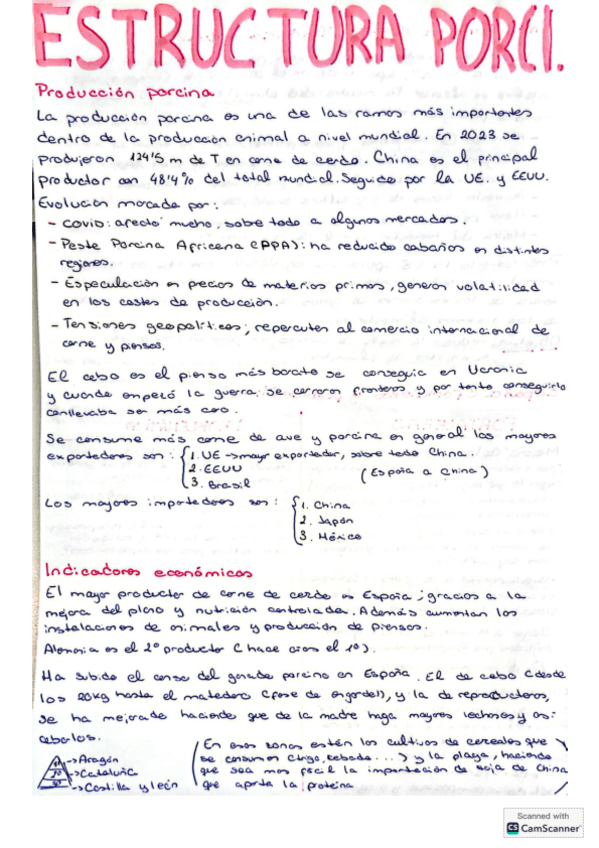 ESTRUCTURA PORCI.
Producción porcina
La producción porcina es una de las ramas más importantes
dentro de la producción animal a nivel mundial. En 2023 se
produjeron 124'5 m de T en carne de cerdo. China es el principal
productor con 48'4% del total mundial. Seguido por la UE. y EEUU.
Evolución marcada por:
- COVID: afectó mucho, sobre todo a algunos mercados.
- Peste Porcina Africana (PPA): ha reducido cabañas en distintas
regiones.
- Especulación en precios de materias primas, generan volatilidad
en los costes de producción.
- Tensiones geopolíticas; repercuten al comercio internacional de
carne y piensos.
El cebo es el pienso más barato se conseguia en Ucrania
y cuando empezó la guerra, se cerraron fronteras y por tanto conseguirlo
conllevaba ser más caro.
Se consume más carne de ave y porcina en general los mayores
exportadores son: 1. UE → mayor exportador, sobre todo China.
2. EEUU (España a China)
3. Brasil
Los mayores importadores son: 1. China
2. Japón
3. México
Indicadores económicos
El mayor productor de carne de cerdo es España; gracias a la
mejora del plano y nutrición controlada. Además aumentan las
instalaciones de animales y producción de piensos.
Alemania es el 2º productor (hace años el 1º).
Ha subido el censo del ganado porcino en España. El de cebo (desde
los 20kg hasta el matadero (fase de engorde)), y la de reproductoras,
se ha mejorado haciendo que de la madre haga mayores lechones y as:
cebalos.
→ Aragón
→ Cataluña
→ Castilla y león
(En esas zonas están los cultivos de cereales que
se consumen (trigo, cebada...) y la playa, haciendo
que sea mas fácil la importación de soja de China
que aporta la proteína)
Scanned with
CS CamScanner